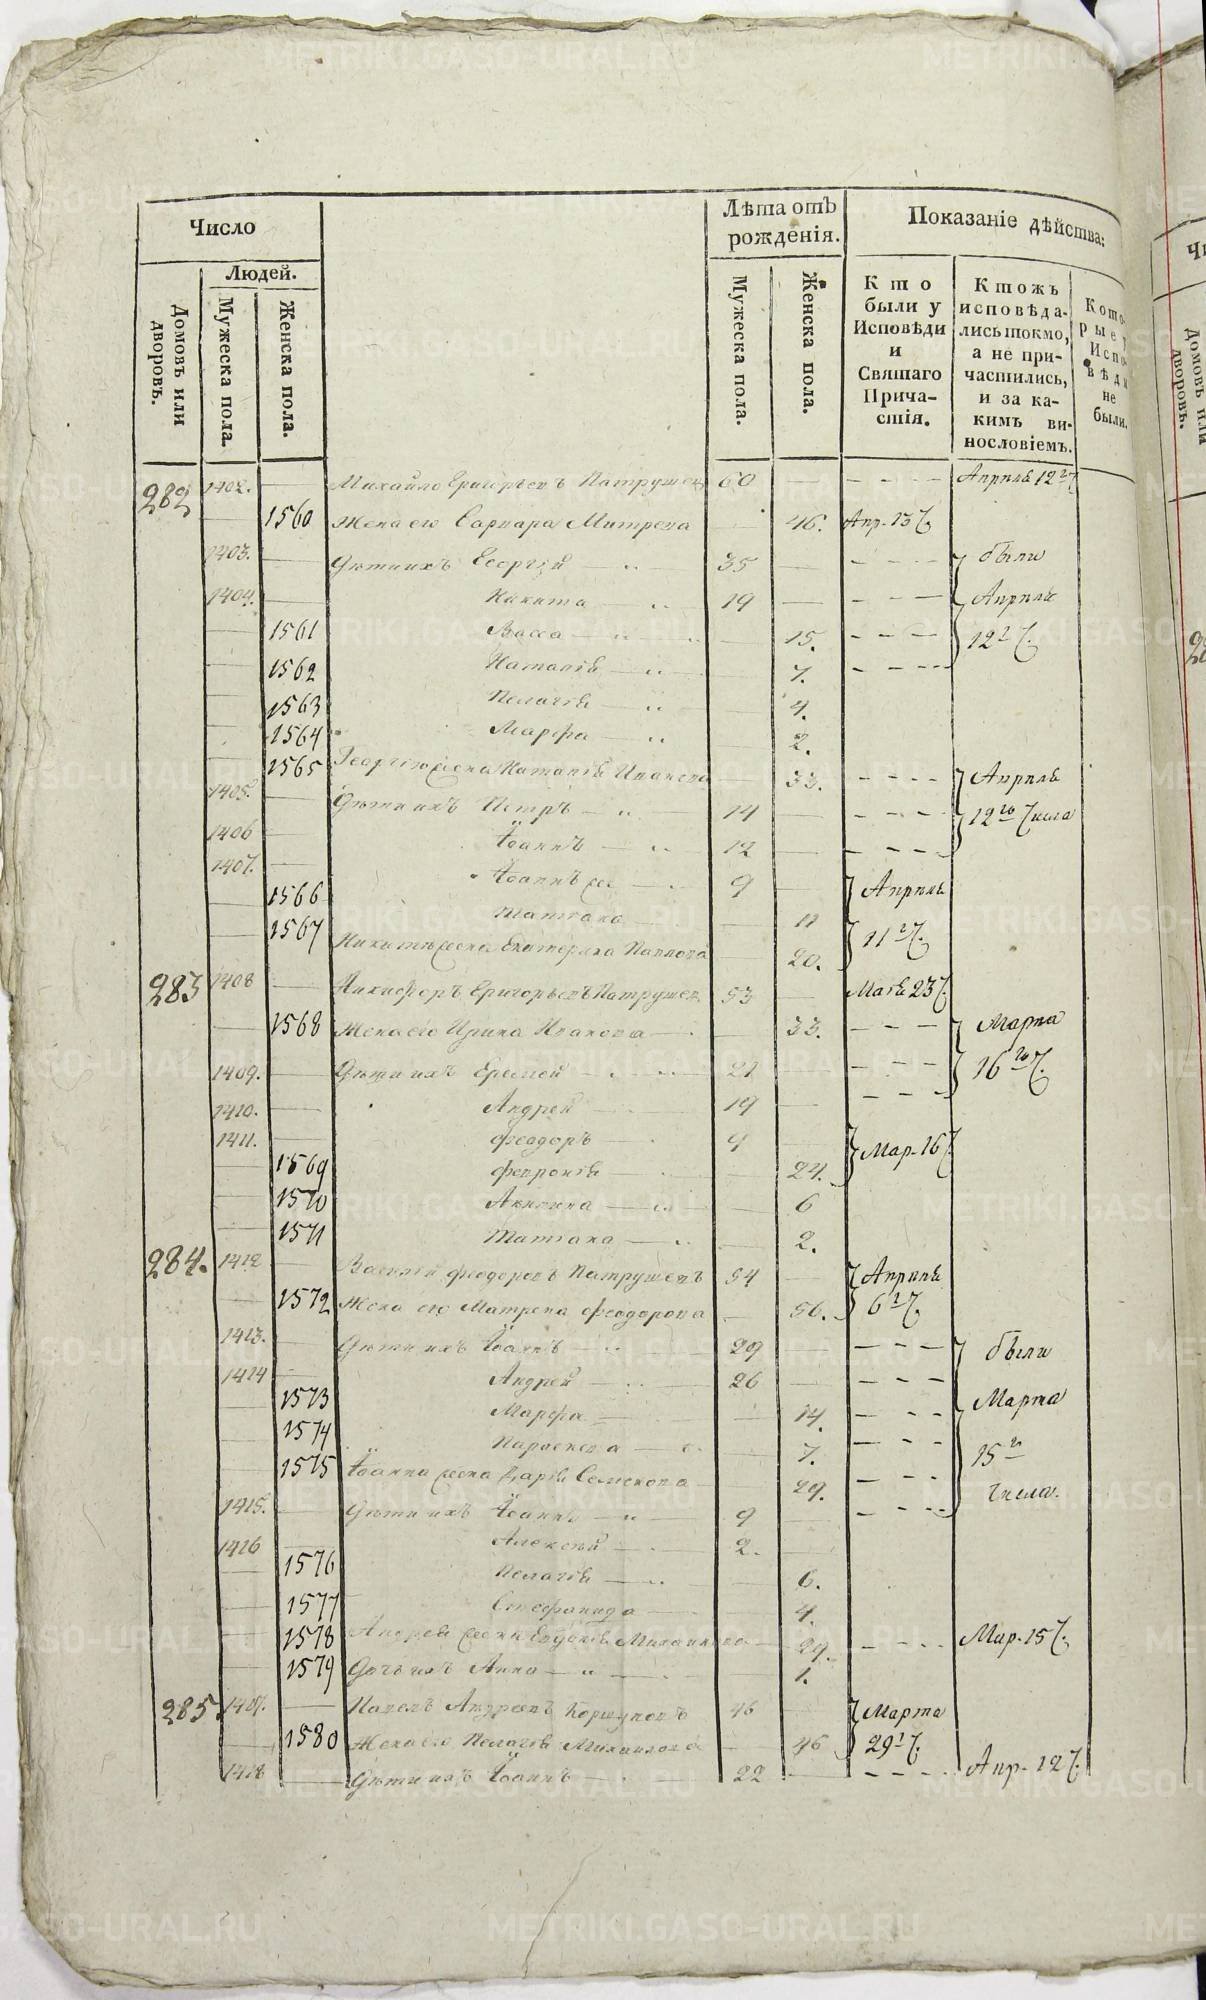 Число
Людей.
Домовъ или дворовъ.
Мужеска пола.
Женска пола.
Лѣта отъ рожденія.
Мужеска пола.
Женска пола.
Показаніе дѣйства:
Кто были у Исповѣди и Святаго Причастія.
Ктожъ исповѣдались токмо, а не причастились, и за какимъ винословіемъ.
Которые Исповѣди не были.
282 1402. Михайло Григорьевъ Патрушевъ 60 Апрѣля 12
1560 Жена его Варвара 46. Апр. 13
1403. Дѣти ихъ Георгій 35 были
1404. Никита 19 Апрѣля
1561 Васса 15. 12
1562 Наталія 7.
1563 Пелагія 4.
1564 Марфа 2.
1565 Георгію жена Наталія Иванова 33. Апрѣля
1405. Дѣти ихъ Петръ 14 12 числа
1406 Іоаннъ 12
1407. Іоаннъ 9 Апрѣля
1566 Татіана 11 11
1567 жена Екатерина Павлова 20.
283 1408 Никифоръ Григорьевъ Патрушевъ 53 23
1568 Жена его Ирина Иванова 33. Марта
1409. Дѣти ихъ Еремей 21 16
1410. Андрей 19
1411. Феодоръ 9 Мар. 16
1569 Февронія 24.
1570 6
1571 Татіана 2.
284. 1412 Василій Феодоровъ Патрушевъ 54 Апрѣля
1572 Жена его Матрена Феодорова 56. 6
1413. Дѣти ихъ Іоаннъ 29 были
1414 Андрей 26 Марта
1573 Марфа 14.
1574 7. 15
1575 Іоанна жена Дарія Семенова 29. числа.
1415. Дѣти ихъ Іоаннъ 9
1416 Алексѣй 2.
1576 Пелагія 6.
1577 Стефанида 4.
1578 Андрея жена Евдокія Михайлова 29. Мар. 15
1579 Дочь ихъ Анна 1.
285. 1417. Павелъ Андреевъ 46 Марта
1580 Жена его Пелагія Михайлова 46 29
1418 Дѣти ихъ Іоаннъ 22 Апр. 12
METRIKI.GASO-URAL.RU